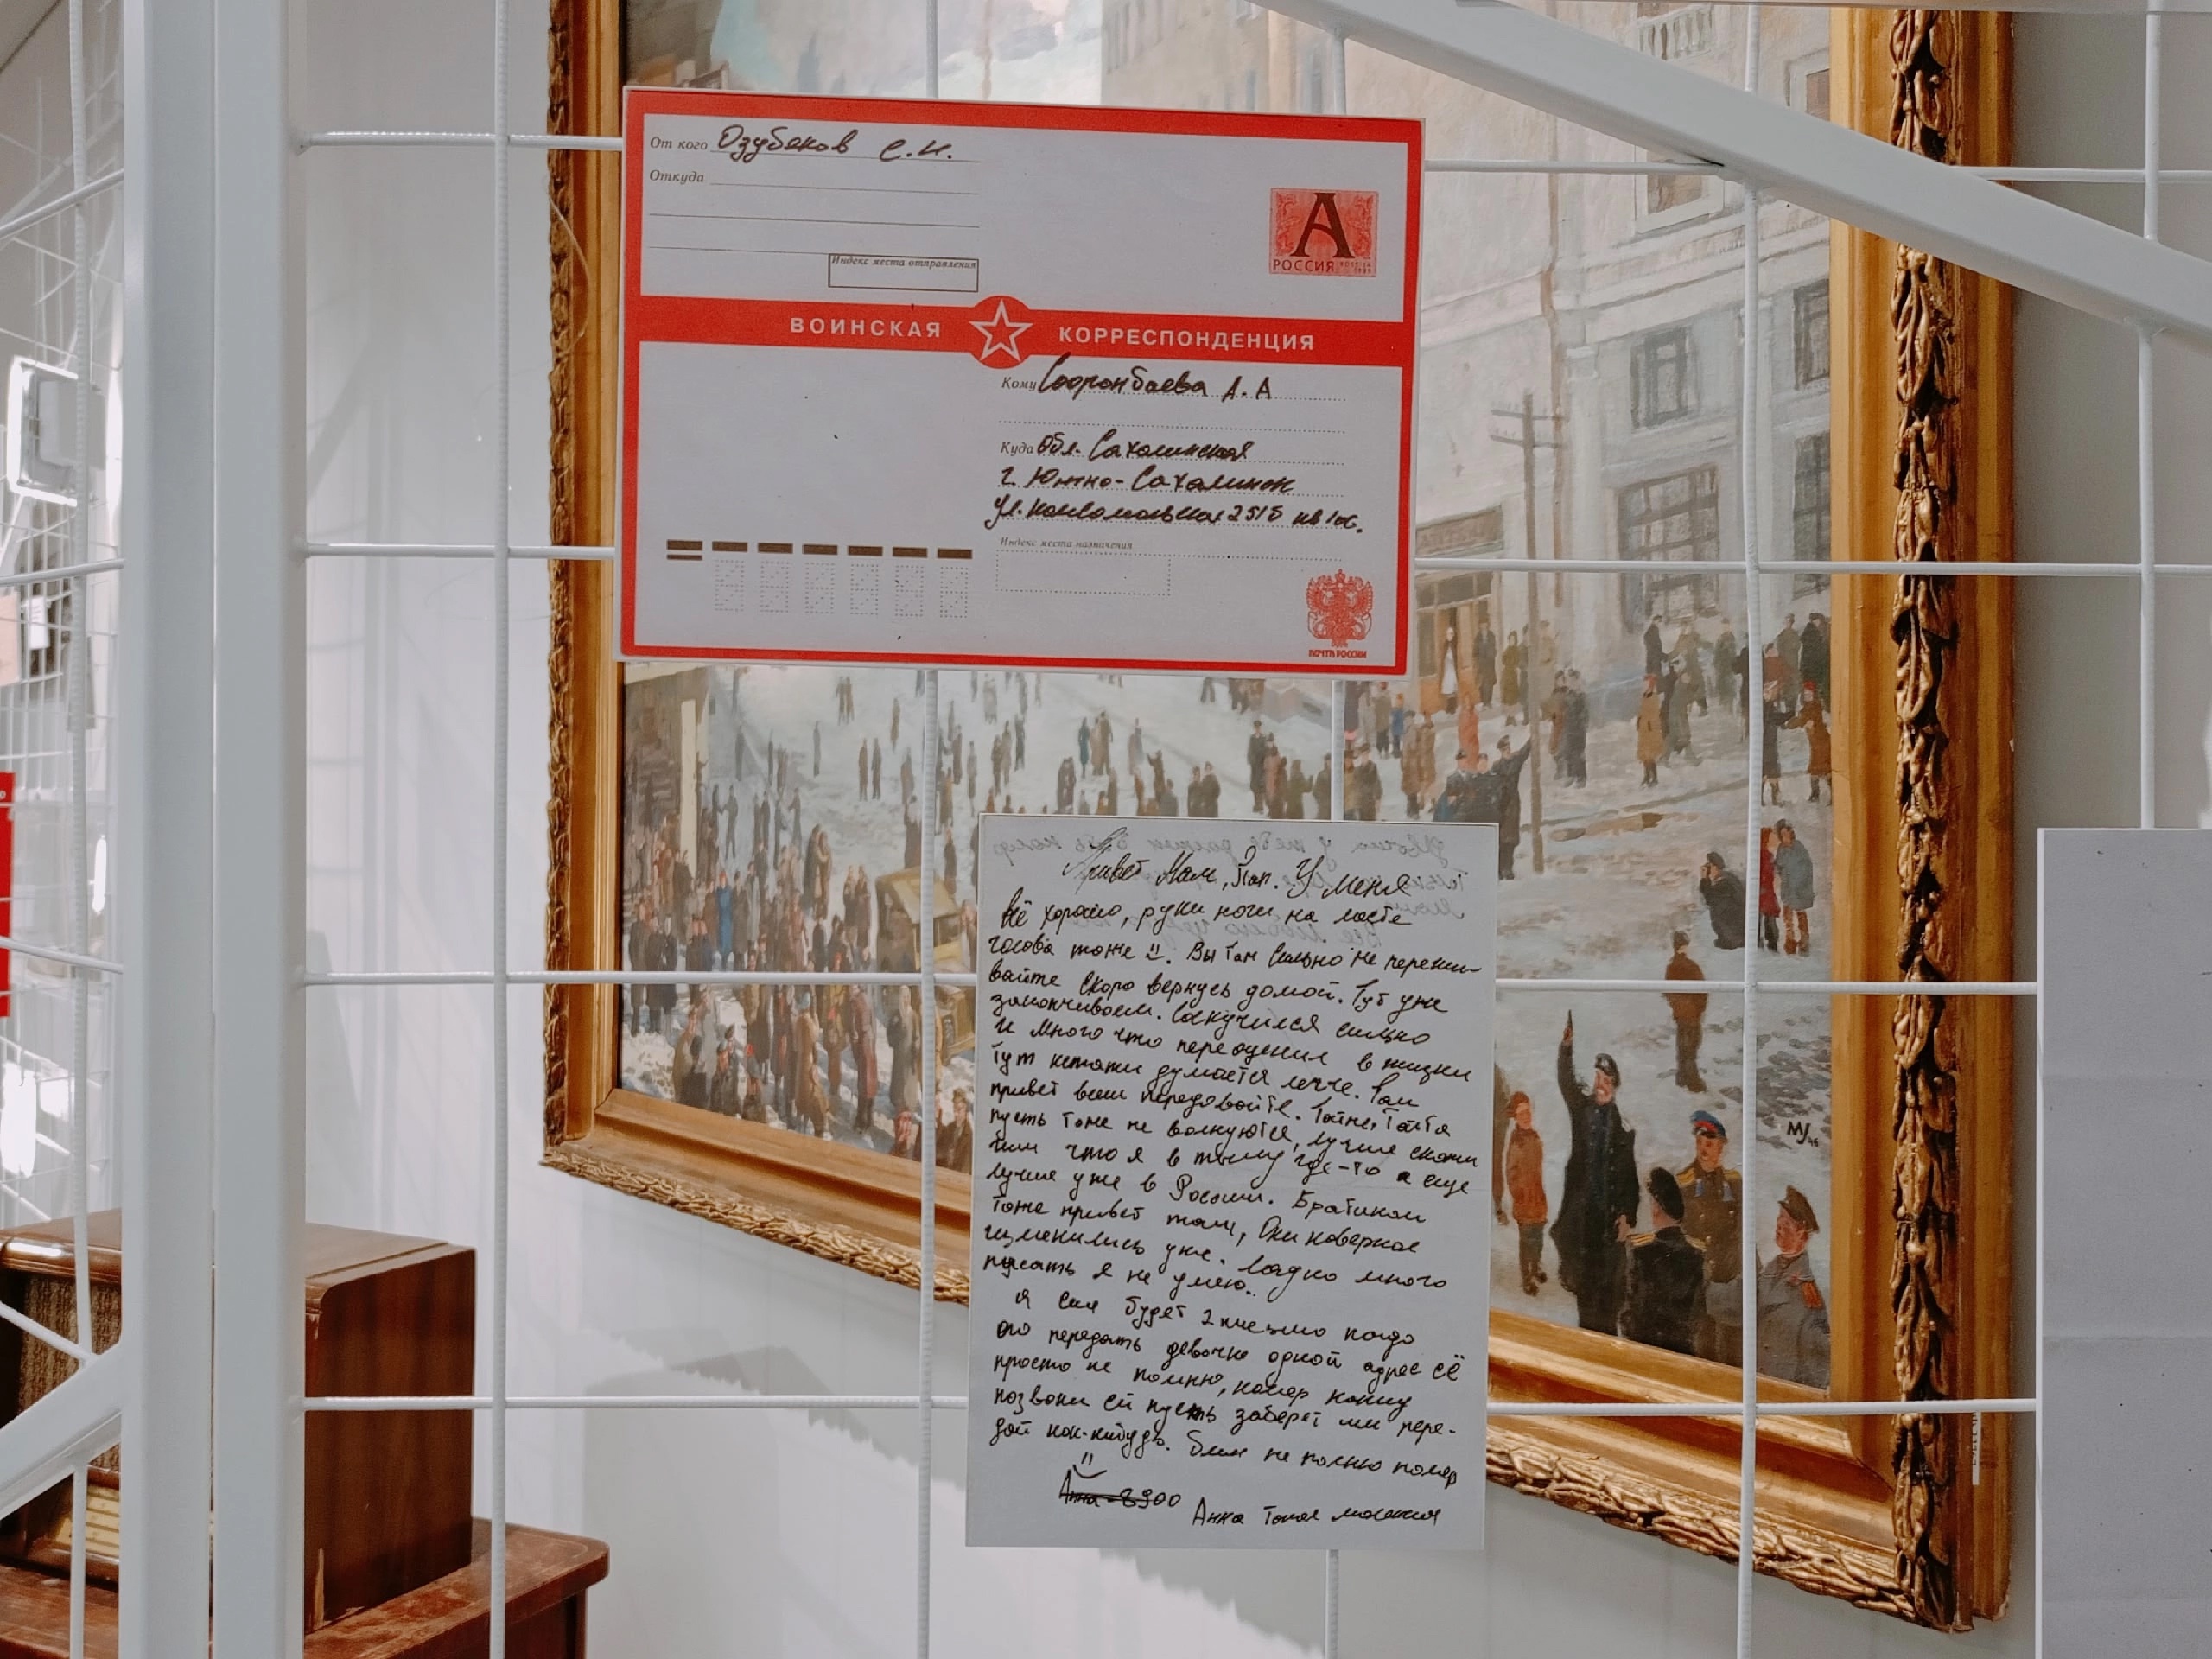 От кого Озубеков С.Н.
Откуда
Индекс места отправления
А
РОССИЯ
ВОИНСКАЯ КОРРЕСПОНДЕНЦИЯ
Кому Сооронбаева А.А
Куда Обл. Сахалинская
г. Южно-Сахалинск
ул. Комсомольская 251Б кв
Индекс места назначения
ПОЧТА РОССИИ
Привет Мам, Пап. У меня
всё хорошо, руки ноги на месте
голова тоже. Вы там сильно не пережи-
вайте скоро вернусь домой. Тут уже
заканчиваем. Соскучился сильно
и много что переоценил в жизни
Тут кстати думается легче. Там
привет всем передавайте. Тайне, Тайта
пусть тоже не волнуются, лучше скажи
им что я в тылу где-то а еще
лучше уже в России. Братикам
тоже привет там, Они наверное
изменились уже. Ладно много
писать я не умею..
Я там будет 2 письмо надо
его передать девочке одной адрес её
просто не помню, номер кину
позвони ей пусть заберет или пере-
дай как-нибудь. Блин не помню номер
8900
Анна Токая
MJ 46